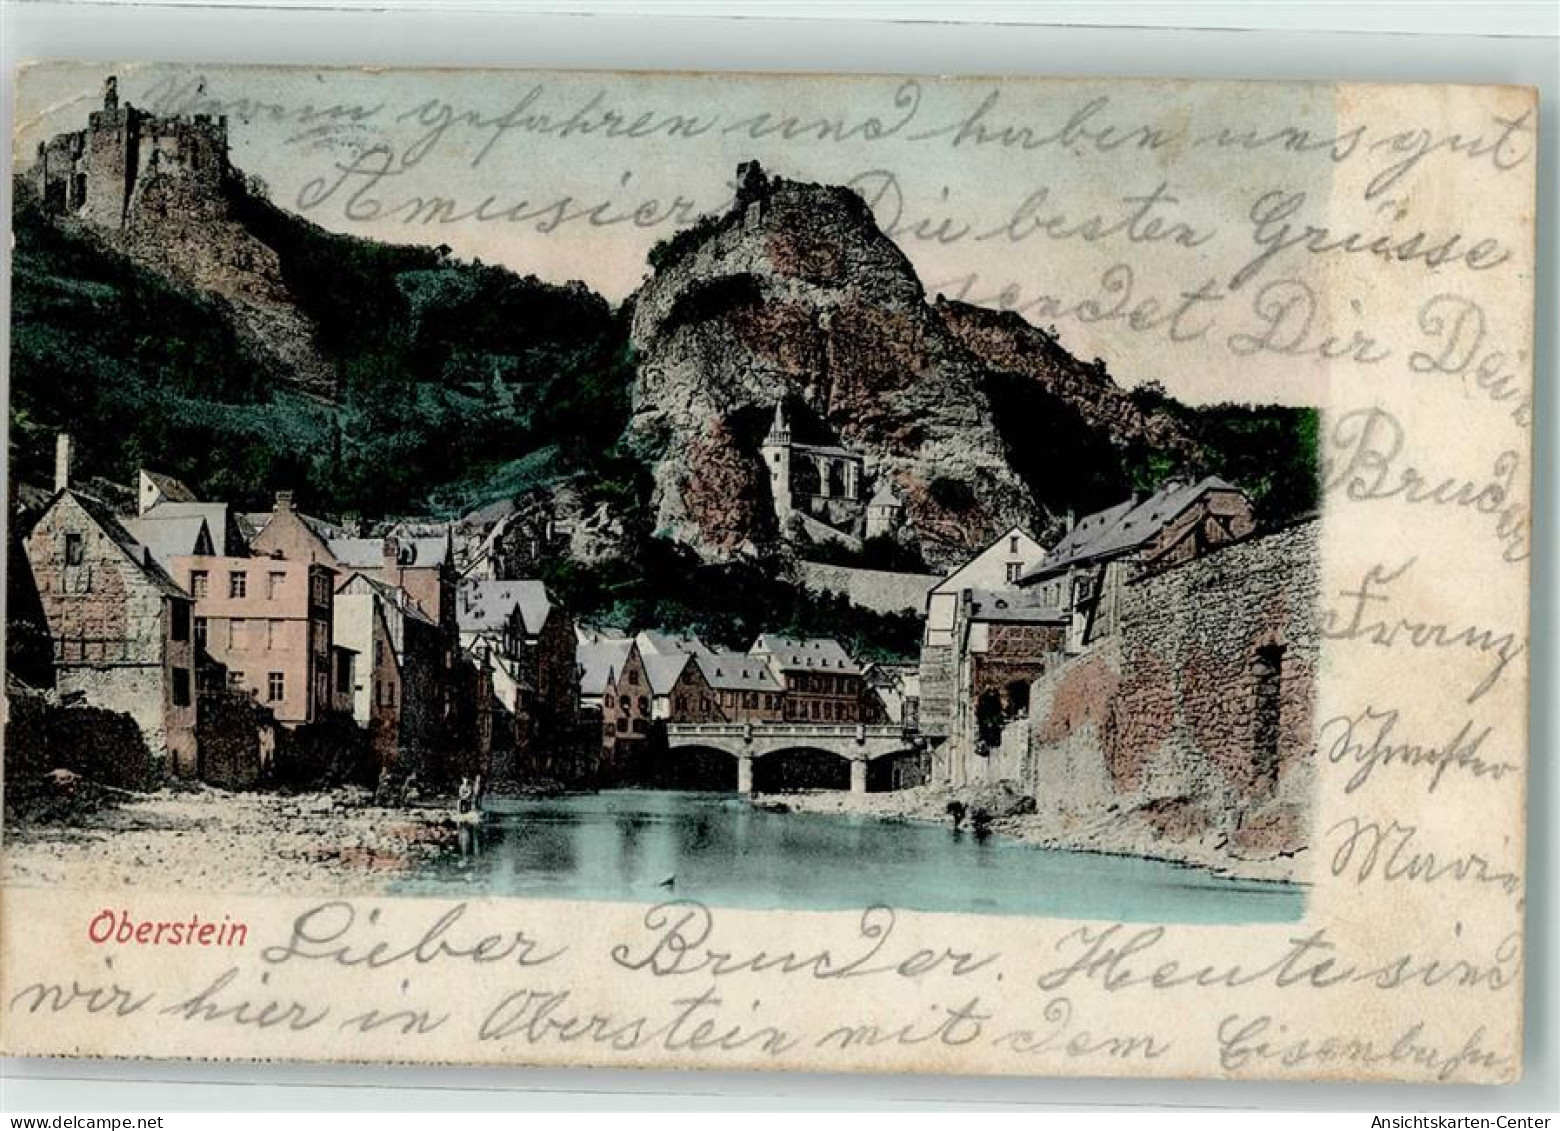 Verein gefahren und haben uns gut
Amusiert Die besten Grüsse
sendet Dir Dein
Bruder
Franz
Schwester
Marie
Oberstein
Lieber Bruder. Heute sind
wir hier in Oberstein mit dem Eisenbahn
Ansichtskarten-Center
oldthing.de